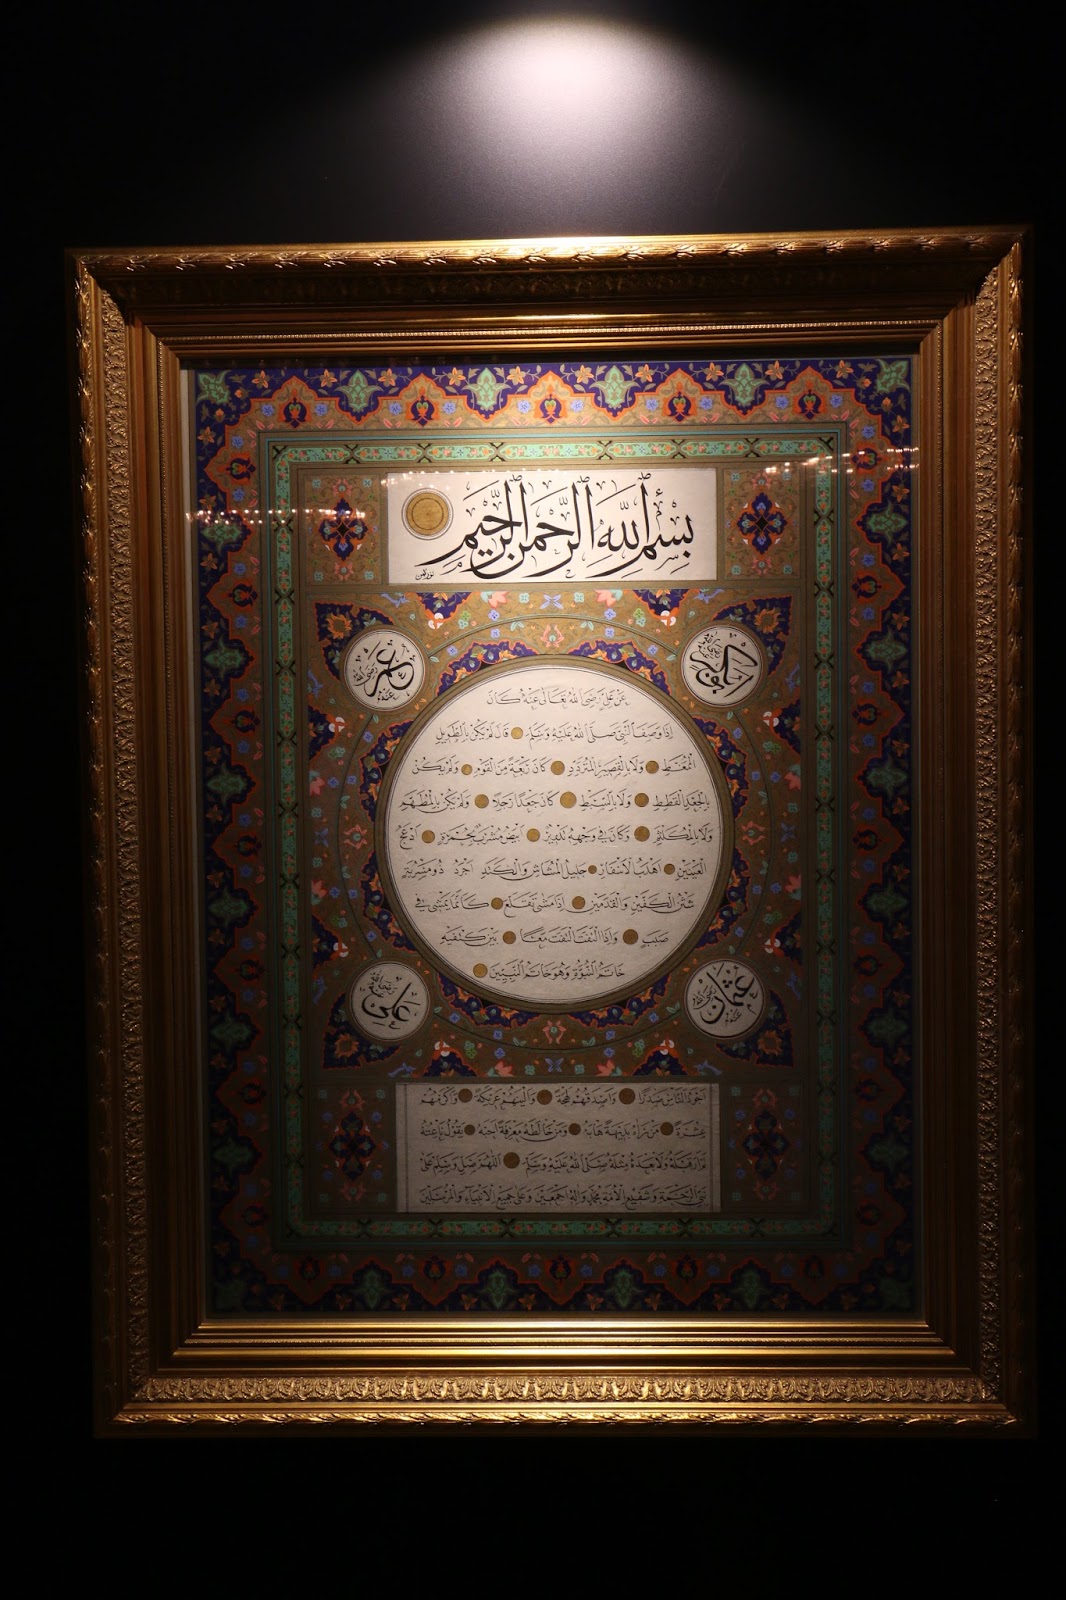 بِسْمِ اللهِ الرَّحْمٰنِ الرَّحِيمِ
أبو بكر رضي الله عنه
عمر رضي الله عنه
عَنْ عَلِيٍّ رَضِيَ اللهُ تَعَالٰى عَنْهُ كَانَ
إِذَا وَصَفَ النَّبِيَّ صَلَّى اللهُ عَلَيْهِ وَسَلَّمَ قَالَ لَمْ يَكُنْ بِالطَّوِيلِ
الْمُمَّغِطِ وَلَا بِالْقَصِيرِ الْمُتَرَدِّدِ كَانَ رَبْعَةً مِنَ الْقَوْمِ وَلَمْ يَكُنْ
بِالْجَعْدِ الْقَطِطِ وَلَا بِالسَّبِطِ كَانَ جَعْدًا رَجِلًا وَلَمْ يَكُنْ بِالْمُطَهَّمِ
وَلَا بِالْمُكَلْثَمِ وَكَانَ فِي وَجْهِهِ تَدْوِيرٌ أَبْيَضُ مُشْرَبٌ بِحُمْرَةٍ أَدْعَجُ
الْعَيْنَيْنِ أَهْدَبُ الْأَشْفَارِ جَلِيلُ الْمُشَاشِ وَالْكَتَدِ أَجْرَدُ ذُو مَسْرُبَةٍ
شَثْنُ الْكَفَّيْنِ وَالْقَدَمَيْنِ إِذَا مَشٰى تَقَلَّعَ كَأَنَّمَا يَمْشِي فِي
صَبَبٍ وَإِذَا الْتَفَتَ الْتَفَتَ مَعًا بَيْنَ كَتِفَيْهِ
خَاتَمُ النُّبُوَّةِ وَهُوَ خَاتَمُ النَّبِيِّينَ
عثمان رضي الله عنه
علي رضي الله عنه
أَجْوَدُ النَّاسِ صَدْرًا وَأَصْدَقُهُمْ لَهْجَةً وَأَلْيَنُهُمْ عَرِيكَةً وَأَكْرَمُهُمْ
عِشْرَةً مَنْ رَآهُ بَدِيهَةً هَابَهُ وَمَنْ خَالَطَهُ مَعْرِفَةً أَحَبَّهُ يَقُولُ نَاعِتُهُ
لَمْ أَرَ قَبْلَهُ وَلَا بَعْدَهُ مِثْلَهُ صَلَّى اللهُ عَلَيْهِ وَسَلَّمَ اللّٰهُمَّ صَلِّ وَسَلِّمْ عَلٰى
نَبِيِّ الرَّحْمَةِ وَشَفِيعِ الْأُمَّةِ مُحَمَّدٍ وَآلِهِ أَجْمَعِينَ وَعَلٰى جَمِيعِ الْأَنْبِيَاءِ وَالْمُرْسَلِينَ